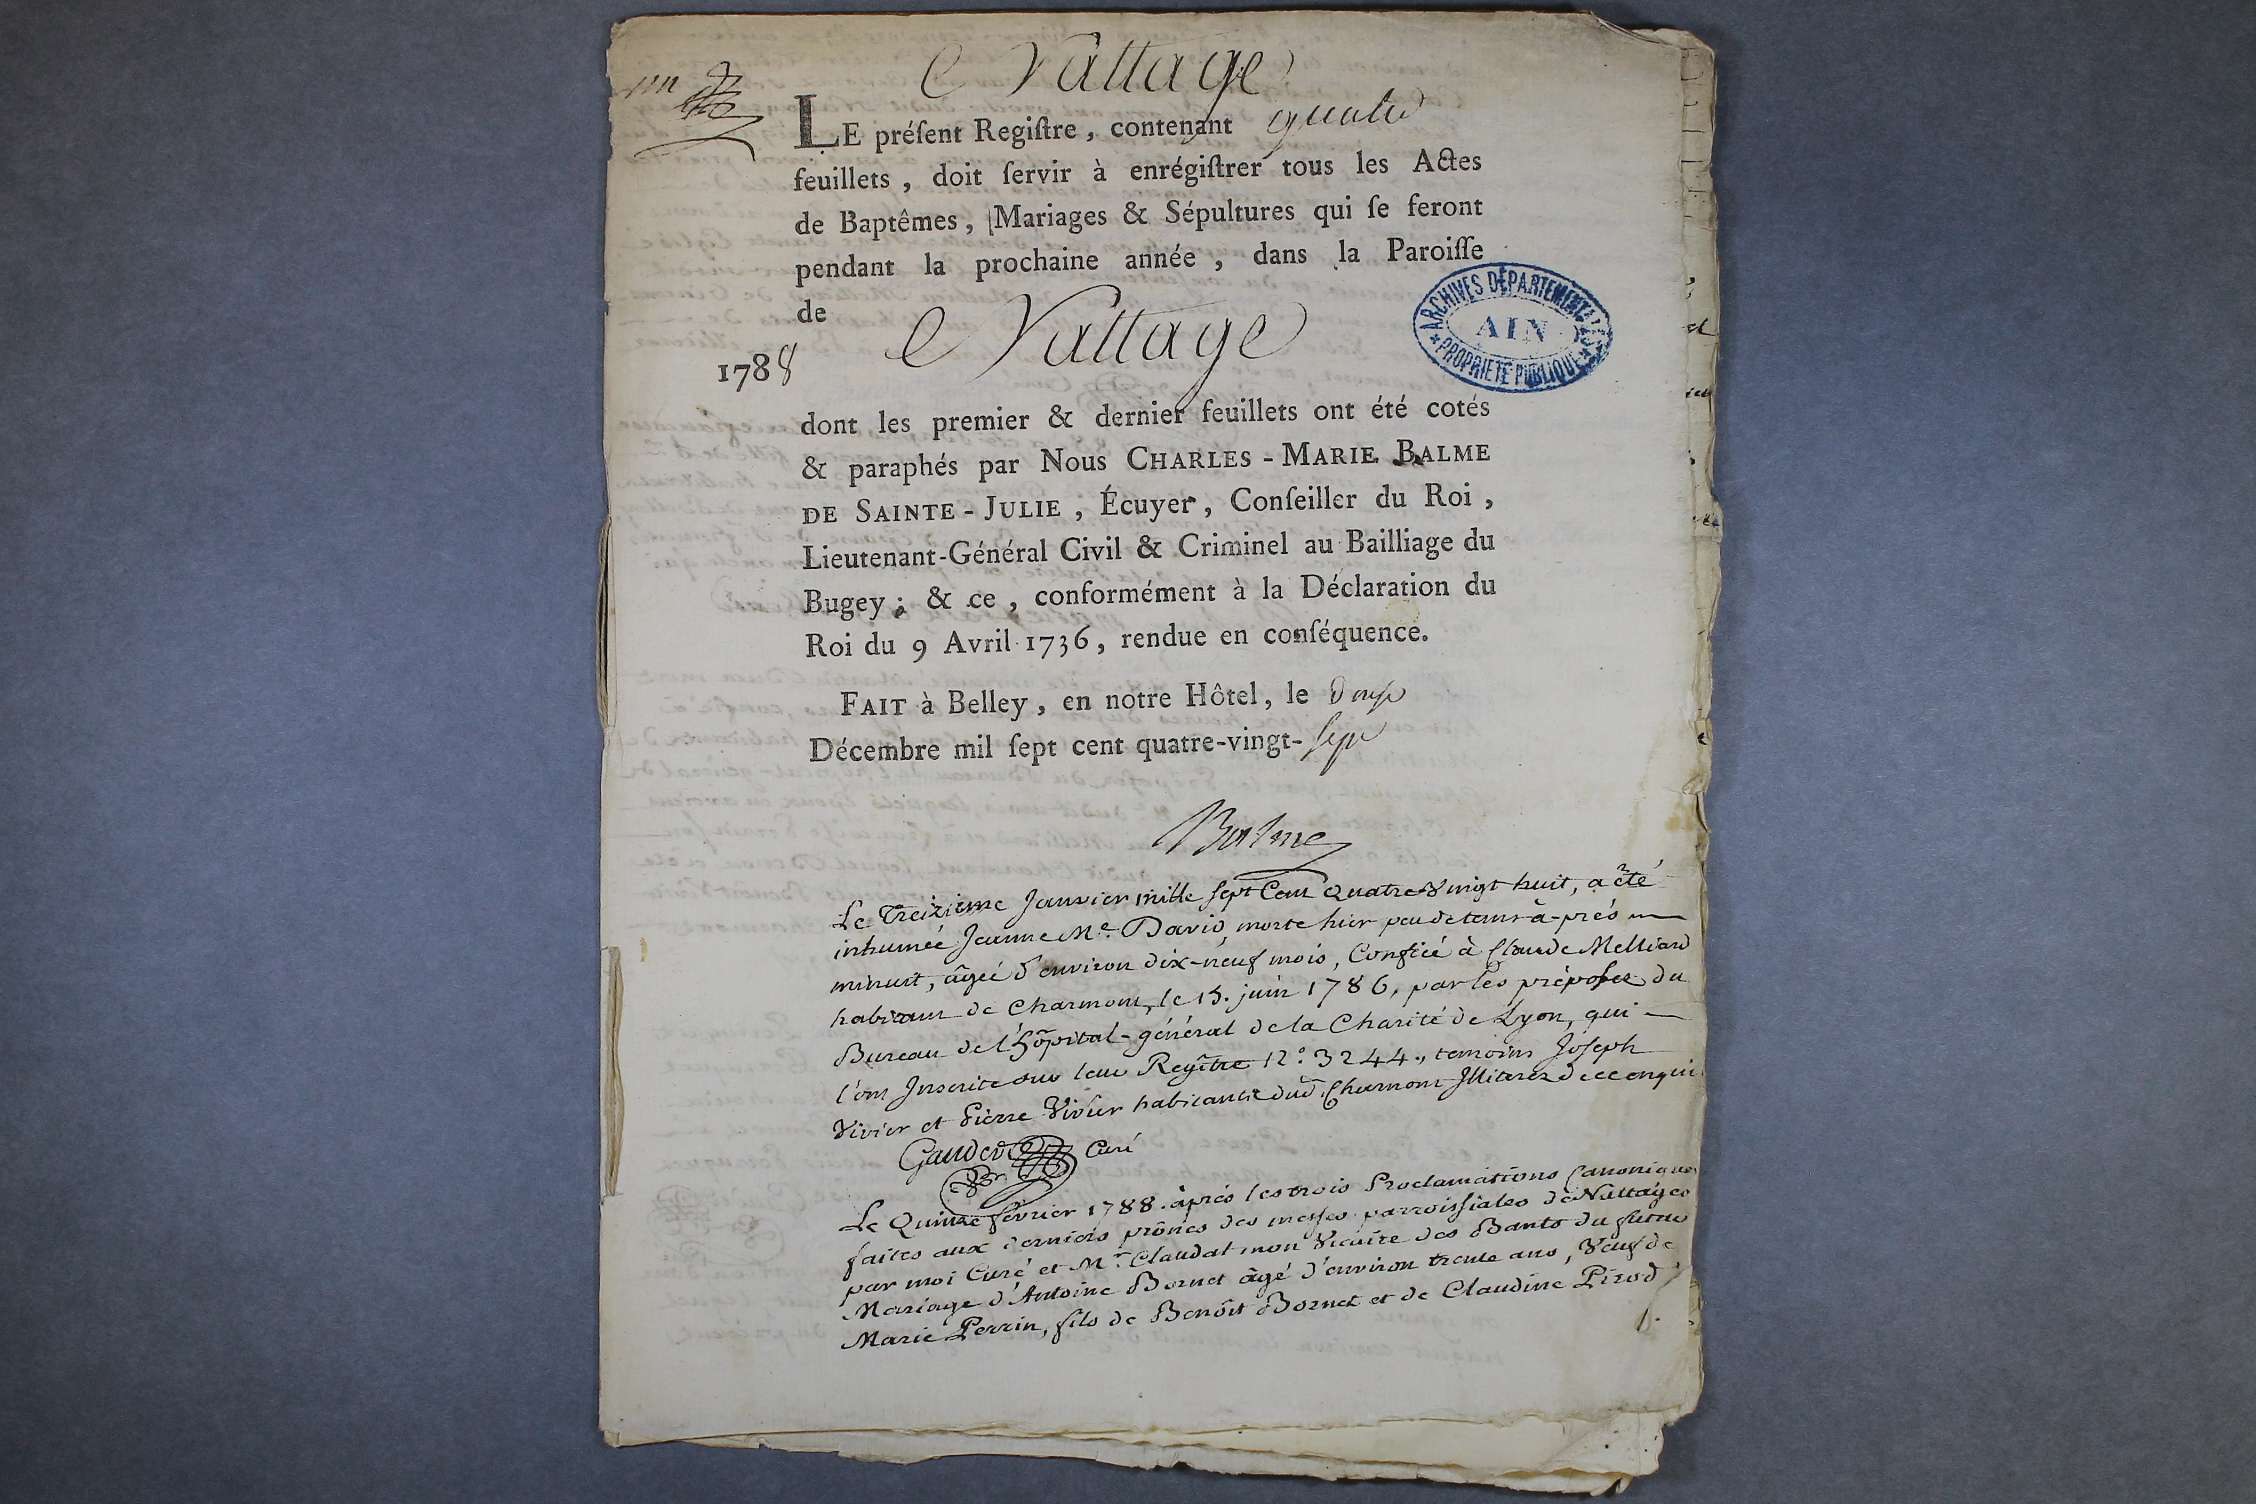 Nattage
un
LE préſent Regiſtre, contenant quatre
feuillets, doit ſervir à enrégiſtrer tous les Actes
de Baptêmes, Mariages & Sépultures qui ſe feront
pendant la prochaine année, dans la Paroiſſe
de
Nattage
1788
ARCHIVES DÉPARTEMENTALES
AIN
PROPRIÉTÉ PUBLIQUE
dont les premier & dernier feuillets ont été cotés
& paraphés par Nous CHARLES-MARIE BALME
DE SAINTE-JULIE, Écuyer, Conſeiller du Roi,
Lieutenant-Général Civil & Criminel au Bailliage du
Bugey; & ce, conformément à la Déclaration du
Roi du 9 Avril 1736, rendue en conſéquence.
FAIT à Belley, en notre Hôtel, le douze
Décembre mil ſept cent quatre-vingt-ſept
Balme
Le Treizieme Janvier mille sept Cent Quatre Vingt huit, a été
inhumée Jeanne Me. David, morte hier peu de tems à-prés
minuit, âgée d'environ dix-neuf mois, Confiée à Claude Melliard
habitant de Charmont, le 15. juin 1786, par les préposés du
Bureau de l'hôpital-général de la Charité de Lyon, qui
l'ont Inscrite sur leur Regître N°. 3244., temoins Joseph
Vivier et Pierre Vivier habitants dud. Charmont Illiterés de ce enquis
Gaudet Curé
Le Quinze février 1788. àprés les trois Proclamations Canoniques
faites aux derniers prônes des messes parroissiales de Nattages
par moi Curé et Mr. Claudat mon Vicaire des Bants du futur
Mariage d'Antoine Bornet âgé d'environ trente ans, Veuf de
Marie Perrin, fils de Benôit Bornet et de Claudine Pirod